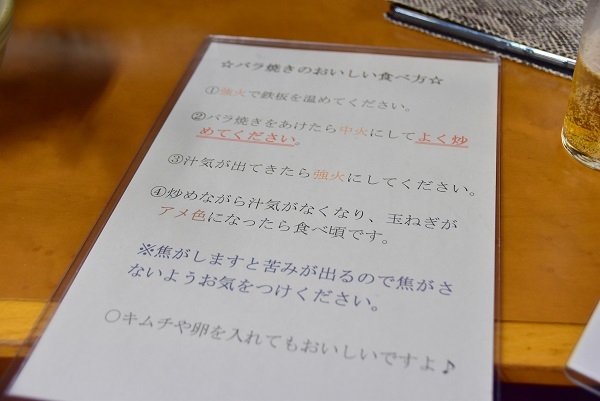 ☆バラ焼きのおいしい食べ方☆
①強火で鉄板を温めてください。
②バラ焼きをあけたら中火にしてよく炒
めてください。
③汁気が出てきたら強火にしてください。
④炒めながら汁気がなくなり、玉ねぎが
アメ色になったら食べ頃です。
※焦がしますと苦みが出るので焦がさ
ないようお気をつけください。
○キムチや卵を入れてもおいしいですよ♪